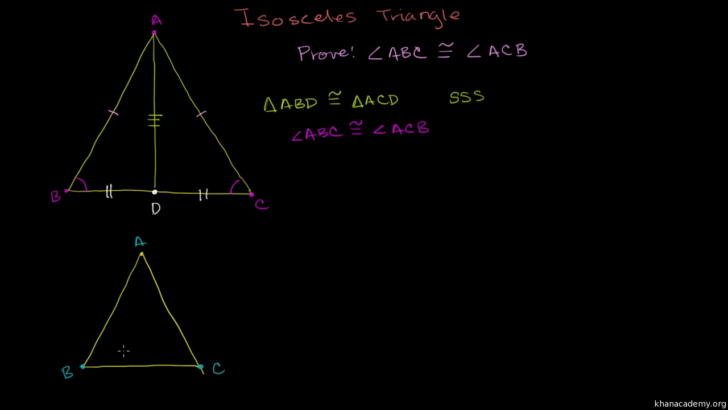 Isosceles Triangle
A
Prove: ∠ABC ≅ ∠ACB
△ABD ≅ △ACD SSS
∠ABC ≅ ∠ACB
B
D
C
A
B
C
khanacademy.org